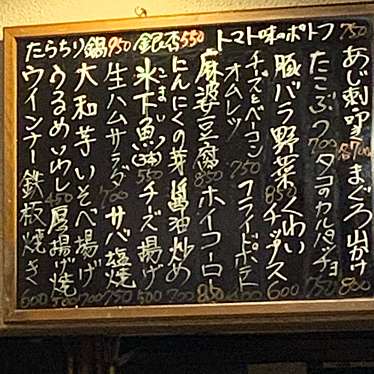 たらちり鍋 950 銀杏 550 トマト味のポトフ 750
あじ刺 叩き 各700 まぐろ山かけ 800
たこぶつ 700 タコのカルパッチョ 750
豚バラ野菜 850 くわいチップス 600
チーズとベーコンオムレツ 750 フライドポテト 400
麻婆豆腐 850 ホイコーロー 850
にんにくの芽醤油炒め 700
氷下魚 こまい 550 チーズ揚げ 500
生ハムサラダ 700 サバ塩焼 750
大和芋いそべ揚げ 700
うるめいわし 450 厚揚げ焼
ウインナー鉄板焼き 600